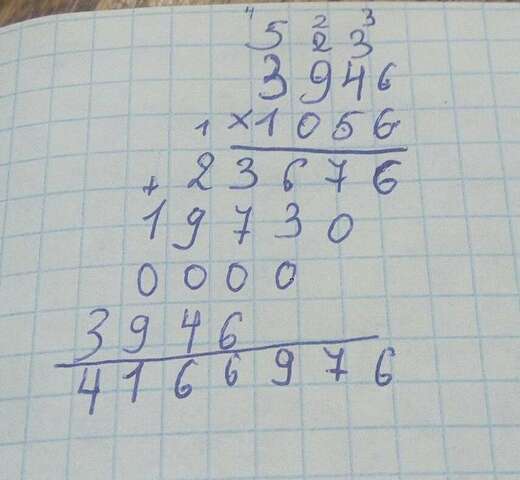 4 2 3
5 2 3
3946
1 ×1056
+ 23676
19730
0000
3946
4166976